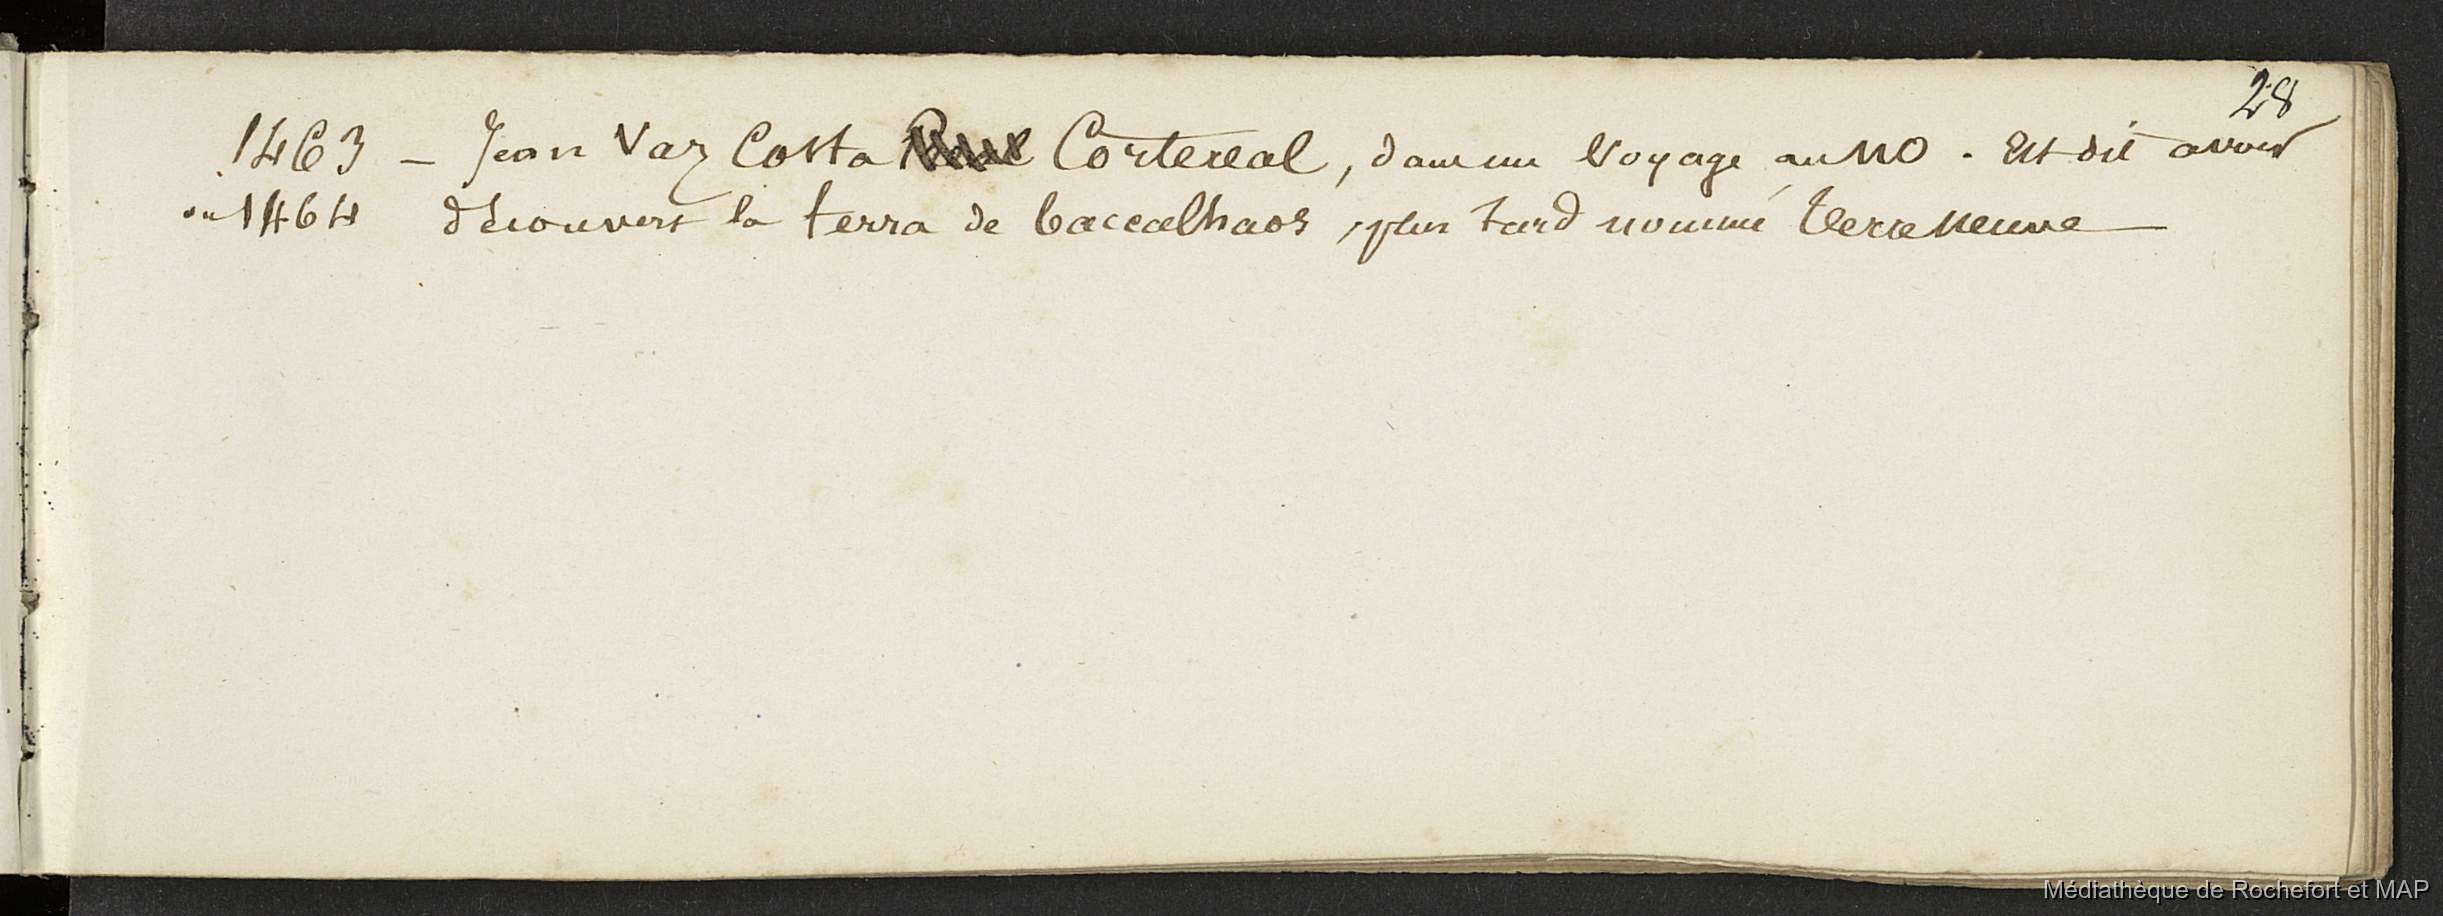 28
1463 – Jean Vaz Costa Cortereal, dans un Voyage au NO. Est dit avoir
ou 1464 découvert la terra de baccalhaos, plus tard nommé terre neuve —
Médiathèque de Rochefort et MAP